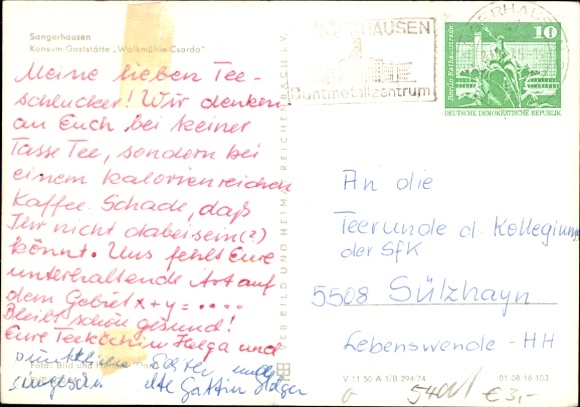 Sangerhausen
Konsum-Gaststätte „Walkmühle-Csarda“
Meine lieben Tee-
schlucker! Wir denken
an Euch bei keiner
Tasse Tee, sondern bei
einem kalorienreichen
Kaffee. Schade, daß
Ihr nicht dabeisein(?)
könnt. Uns fehlt Eure
unterhaltende Art auf
dem Gebiet x + y = ....
Bleibt schön gesund!
Eure Teeköchin Helga und
Foto: Bild und Heimat
VEB BILD UND HEIMAT REICHENBACH I. V.
NORDHAUSEN
Buntmetallzentrum
SANGERHAUSEN
10
Berlin, Rathausstraße
DEUTSCHE DEMOKRATISCHE REPUBLIK
An die
Teerunde d. Kollegiums
der SfK
5508 Sülzhayn
Lebenswende - HH
V 11 50 A 1/B 294/74
01 08 16 103
€ 3,-